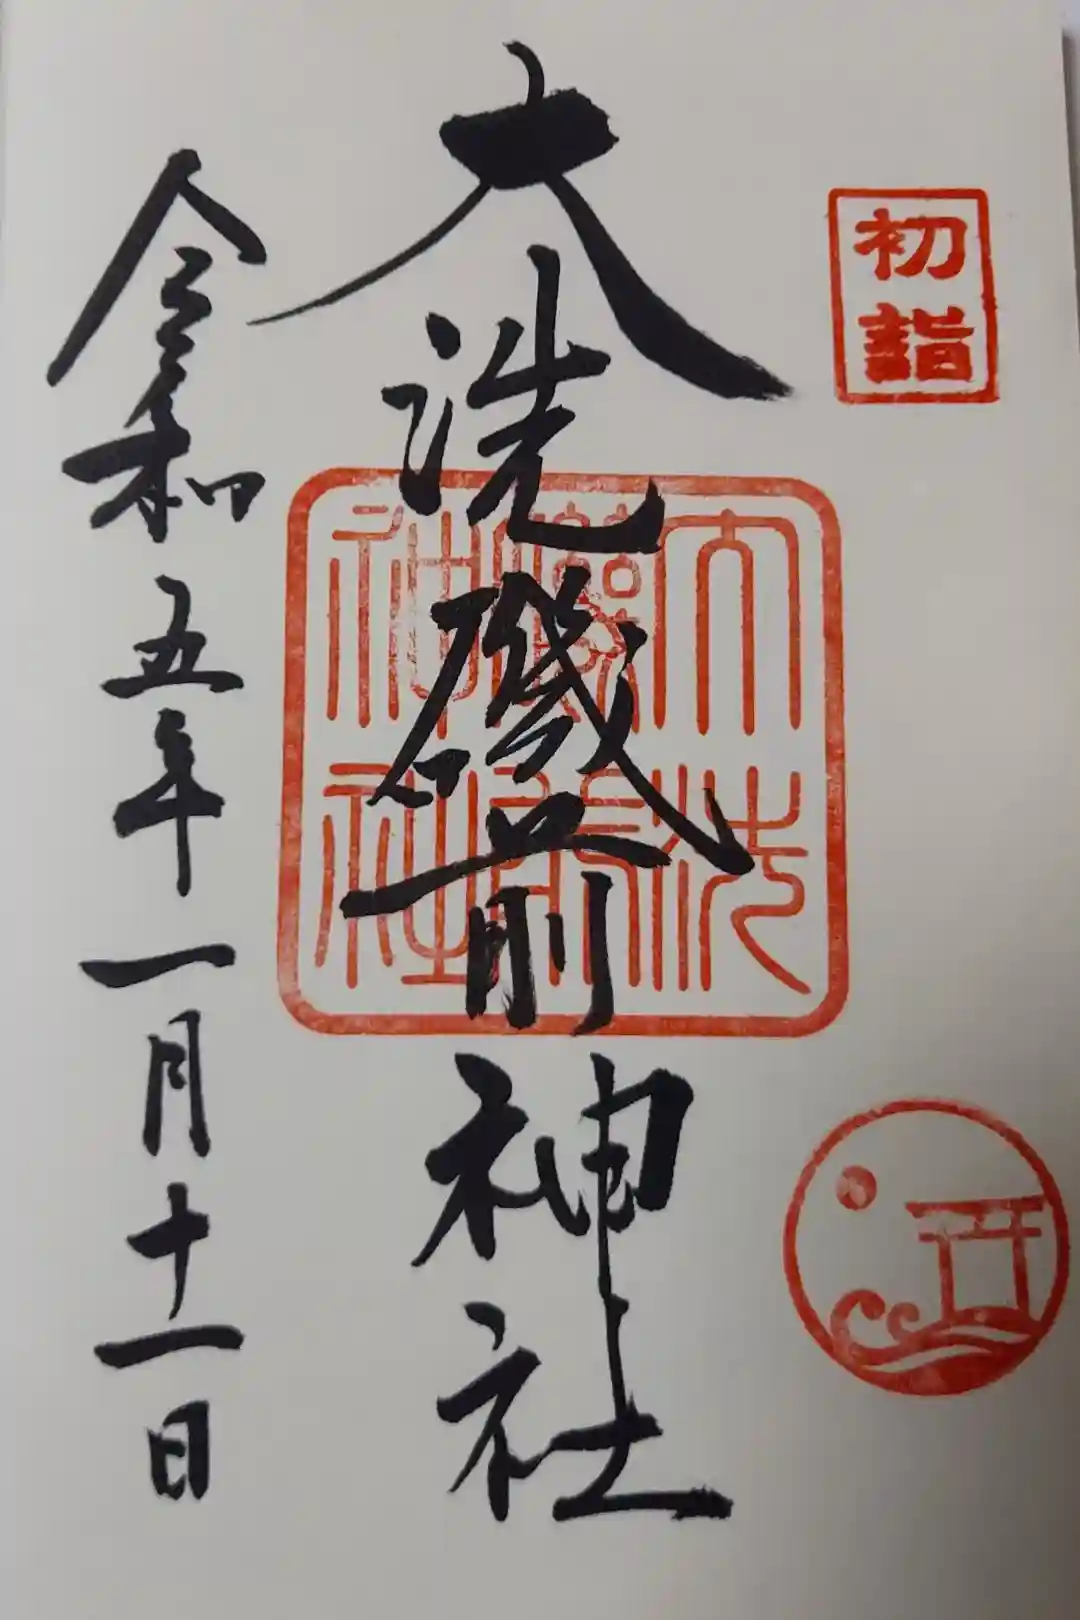 初詣
大洗磯前神社
大洗磯前神社
令和五年一月十一日